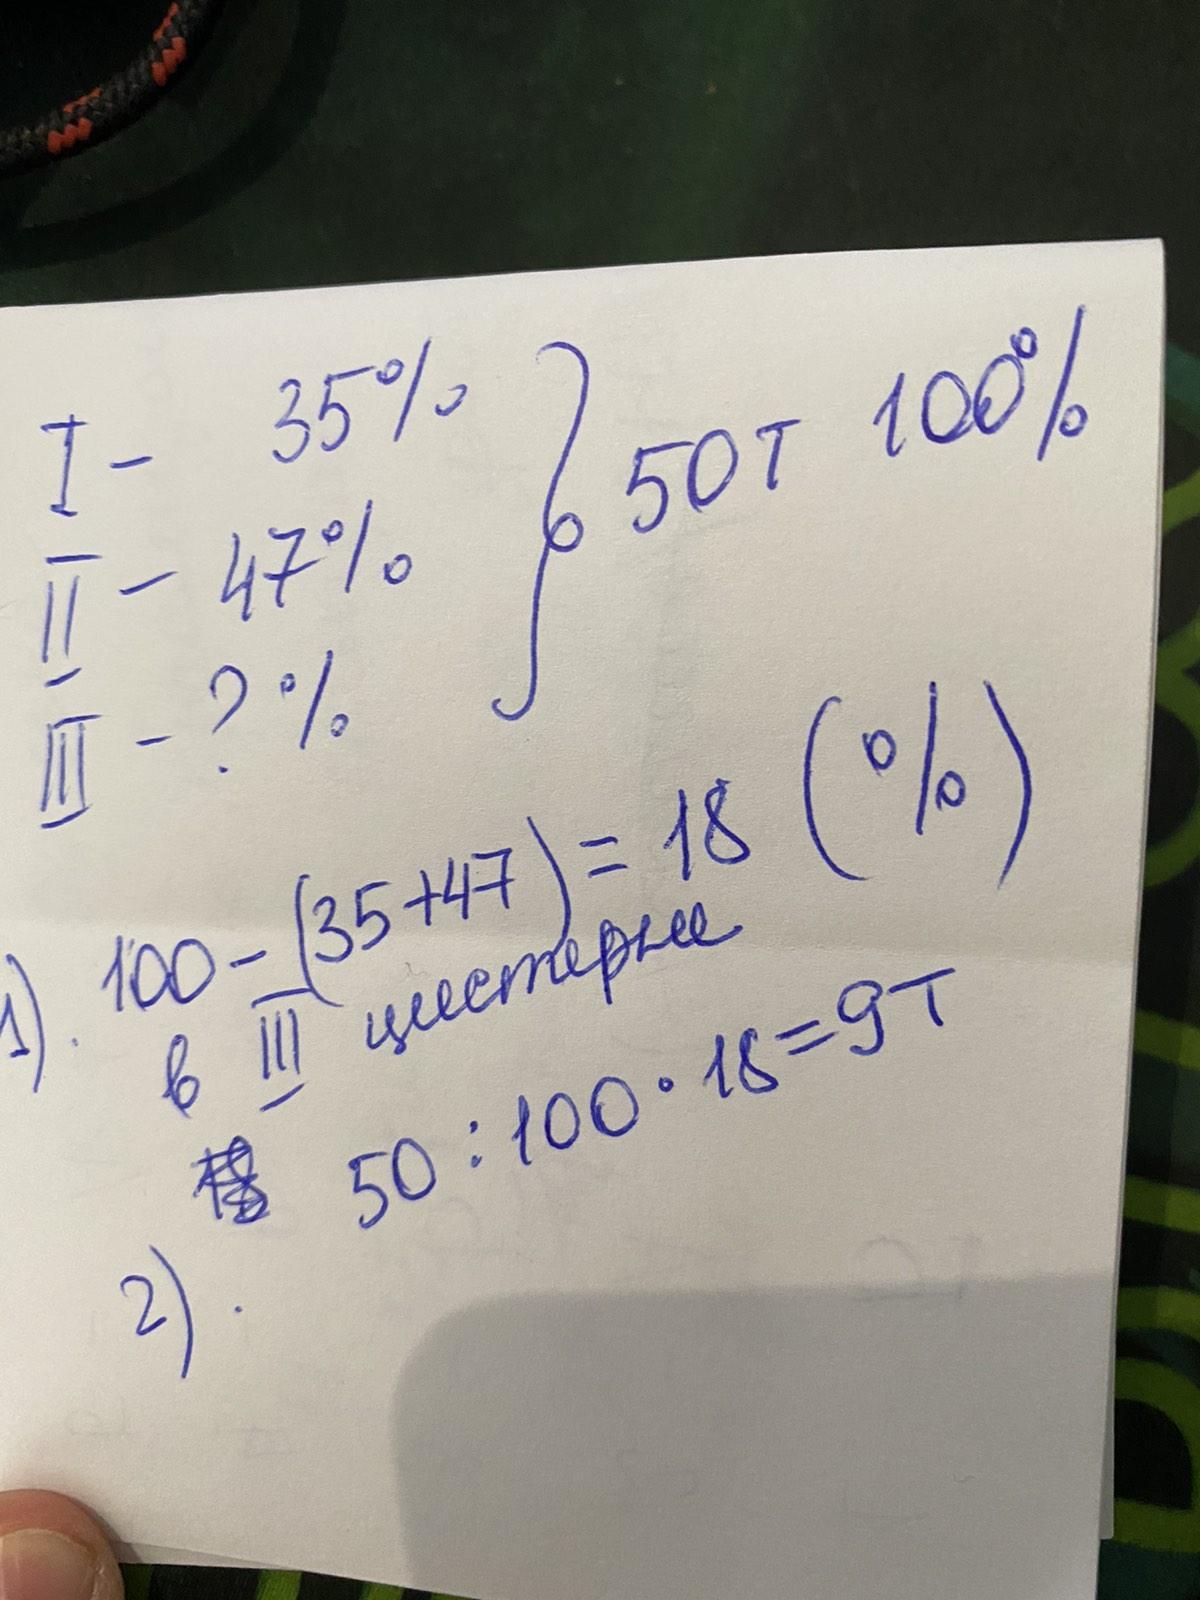 I - 35%
II - 47%
III - ? %
50т 100%
1). 100 - (35+47) = 18 (%)
в III цистерне
50 : 100 · 18 = 9т
2).